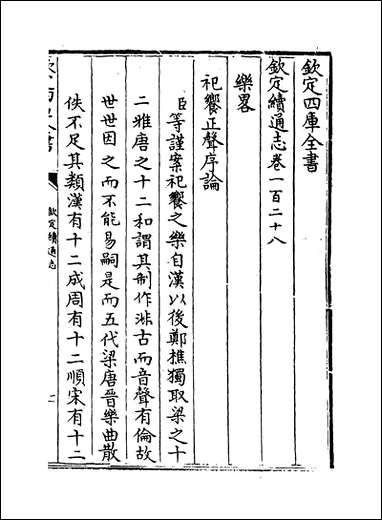 欽定四庫全書
欽定續通志卷一百二十八
樂畧
祀饗正聲序論
臣等謹案祀饗之樂自漢以後鄭樵獨取梁之十
二雅唐之十二和謂其制作非古而音聲有倫故
世世因之而不能易嗣是而五代梁唐晉樂曲散
佚不足其類漢有十二成周有十二順宋有十二
欽定續通志
一